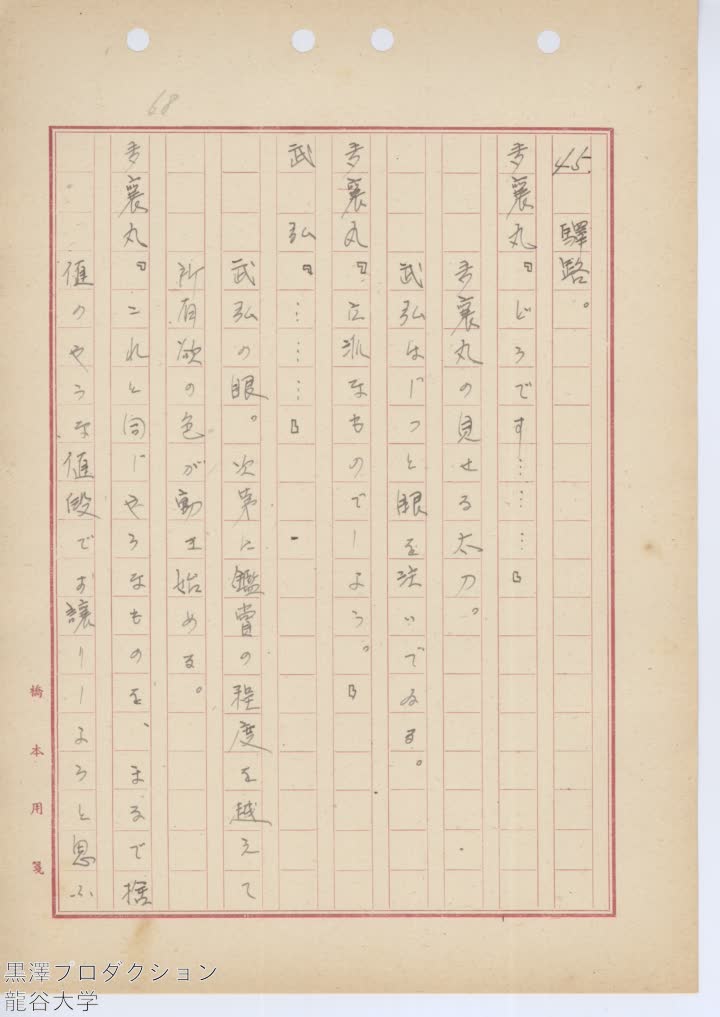 68
45. 驛路。
多襄丸『どうです………』
多襄丸の見せる太刀。
武弘はじつと眼を注いでゐる。
多襄丸『立派なものでしよう。』
武弘『………』
武弘の眼。次第に鑑賞の程度を越えて
所有欲の色が動き始める。
多襄丸『これと同じやうなものを、まるで捨
値のやうな値段でお譲りしようと思ふ
橋本用箋
黒澤プロダクション
龍谷大学